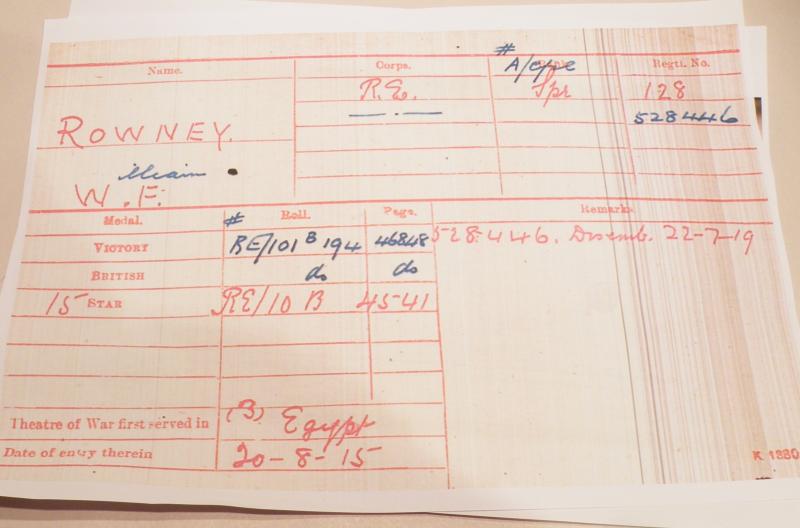 Name. Corps. # A/cpl Regtl. No.
R.E. Spr 128
ROWNEY. 528446
W.illiam F.
Medal. # Roll. Page. Remarks
VICTORY RE/101 B 194 46848 528446. Disemb. 22-7-19
BRITISH do do
15 STAR RE/10 B 4541
Theatre of War first served in (3) Egypt
Date of entry therein 20-8-15
K 1380